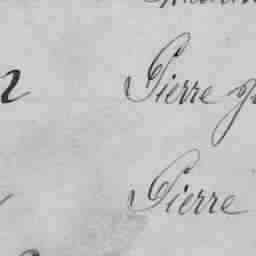 2 Pierre
Pierre